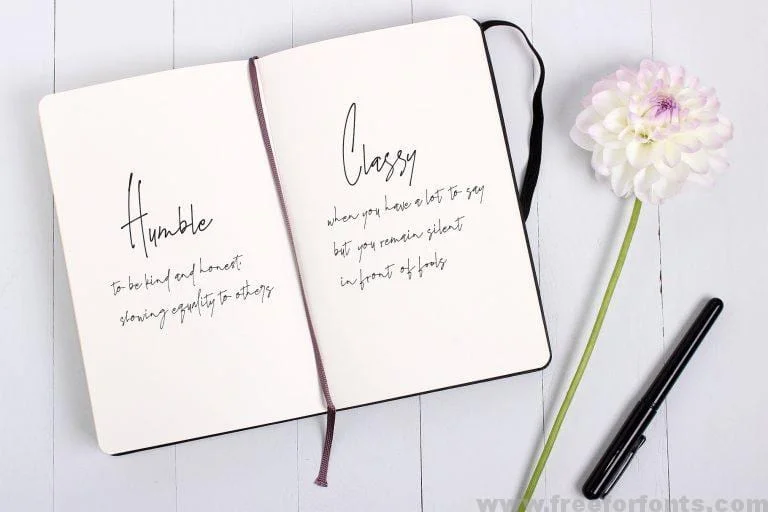 Humble
to be kind and honest.
slowing equality to others
Classy
when you have a lot to say
but you remain silent
in front of fools
www.freeforfonts.com